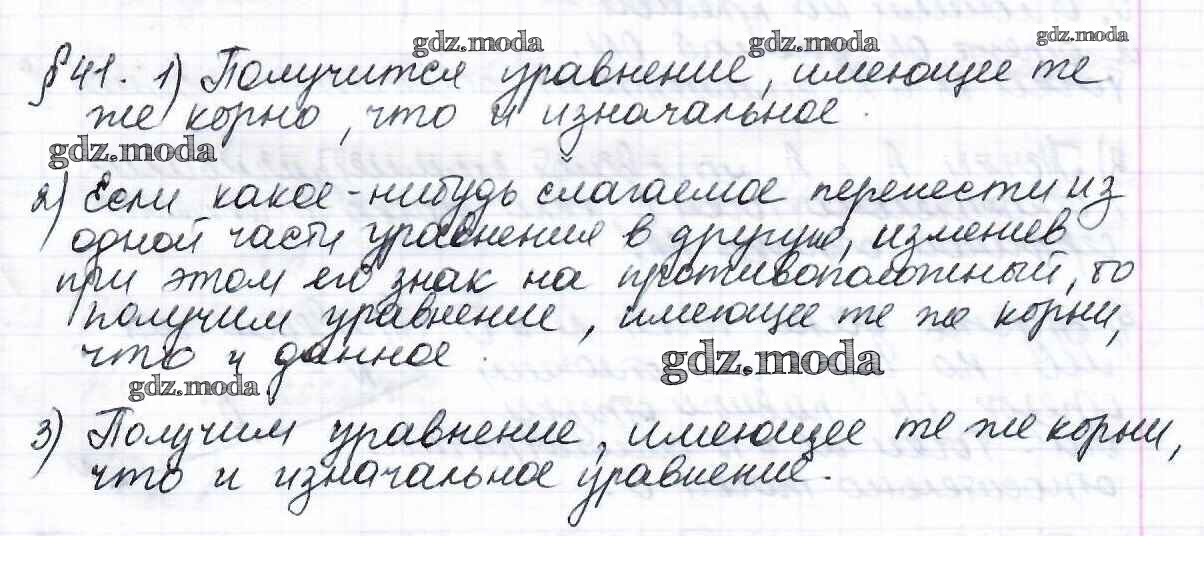 gdz.moda gdz.moda gdz.moda
§41. 1) Получится уравнение, имеющее те
же корно, что и изначальное.
gdz.moda
2) Если какое-нибудь слагаемое перенести из
одной части уравнения в другую, изменив
при этом его знак на противоположный, то
получим уравнение, имеющее те же корни,
что и данное.
gdz.moda
gdz.moda
3) Получим уравнение, имеющее те же корни,
что и изначальное уравнение.